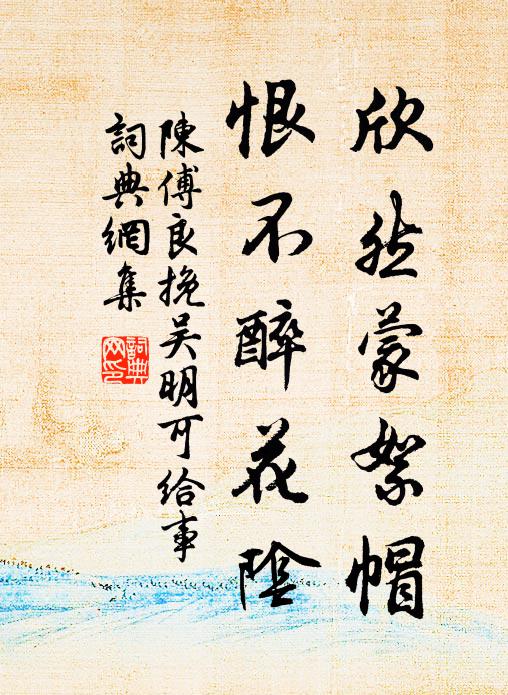 欣然蒙絮帽
恨不醉花陰
陳傅良挽吴明可給事
詞典網集
詞典網印